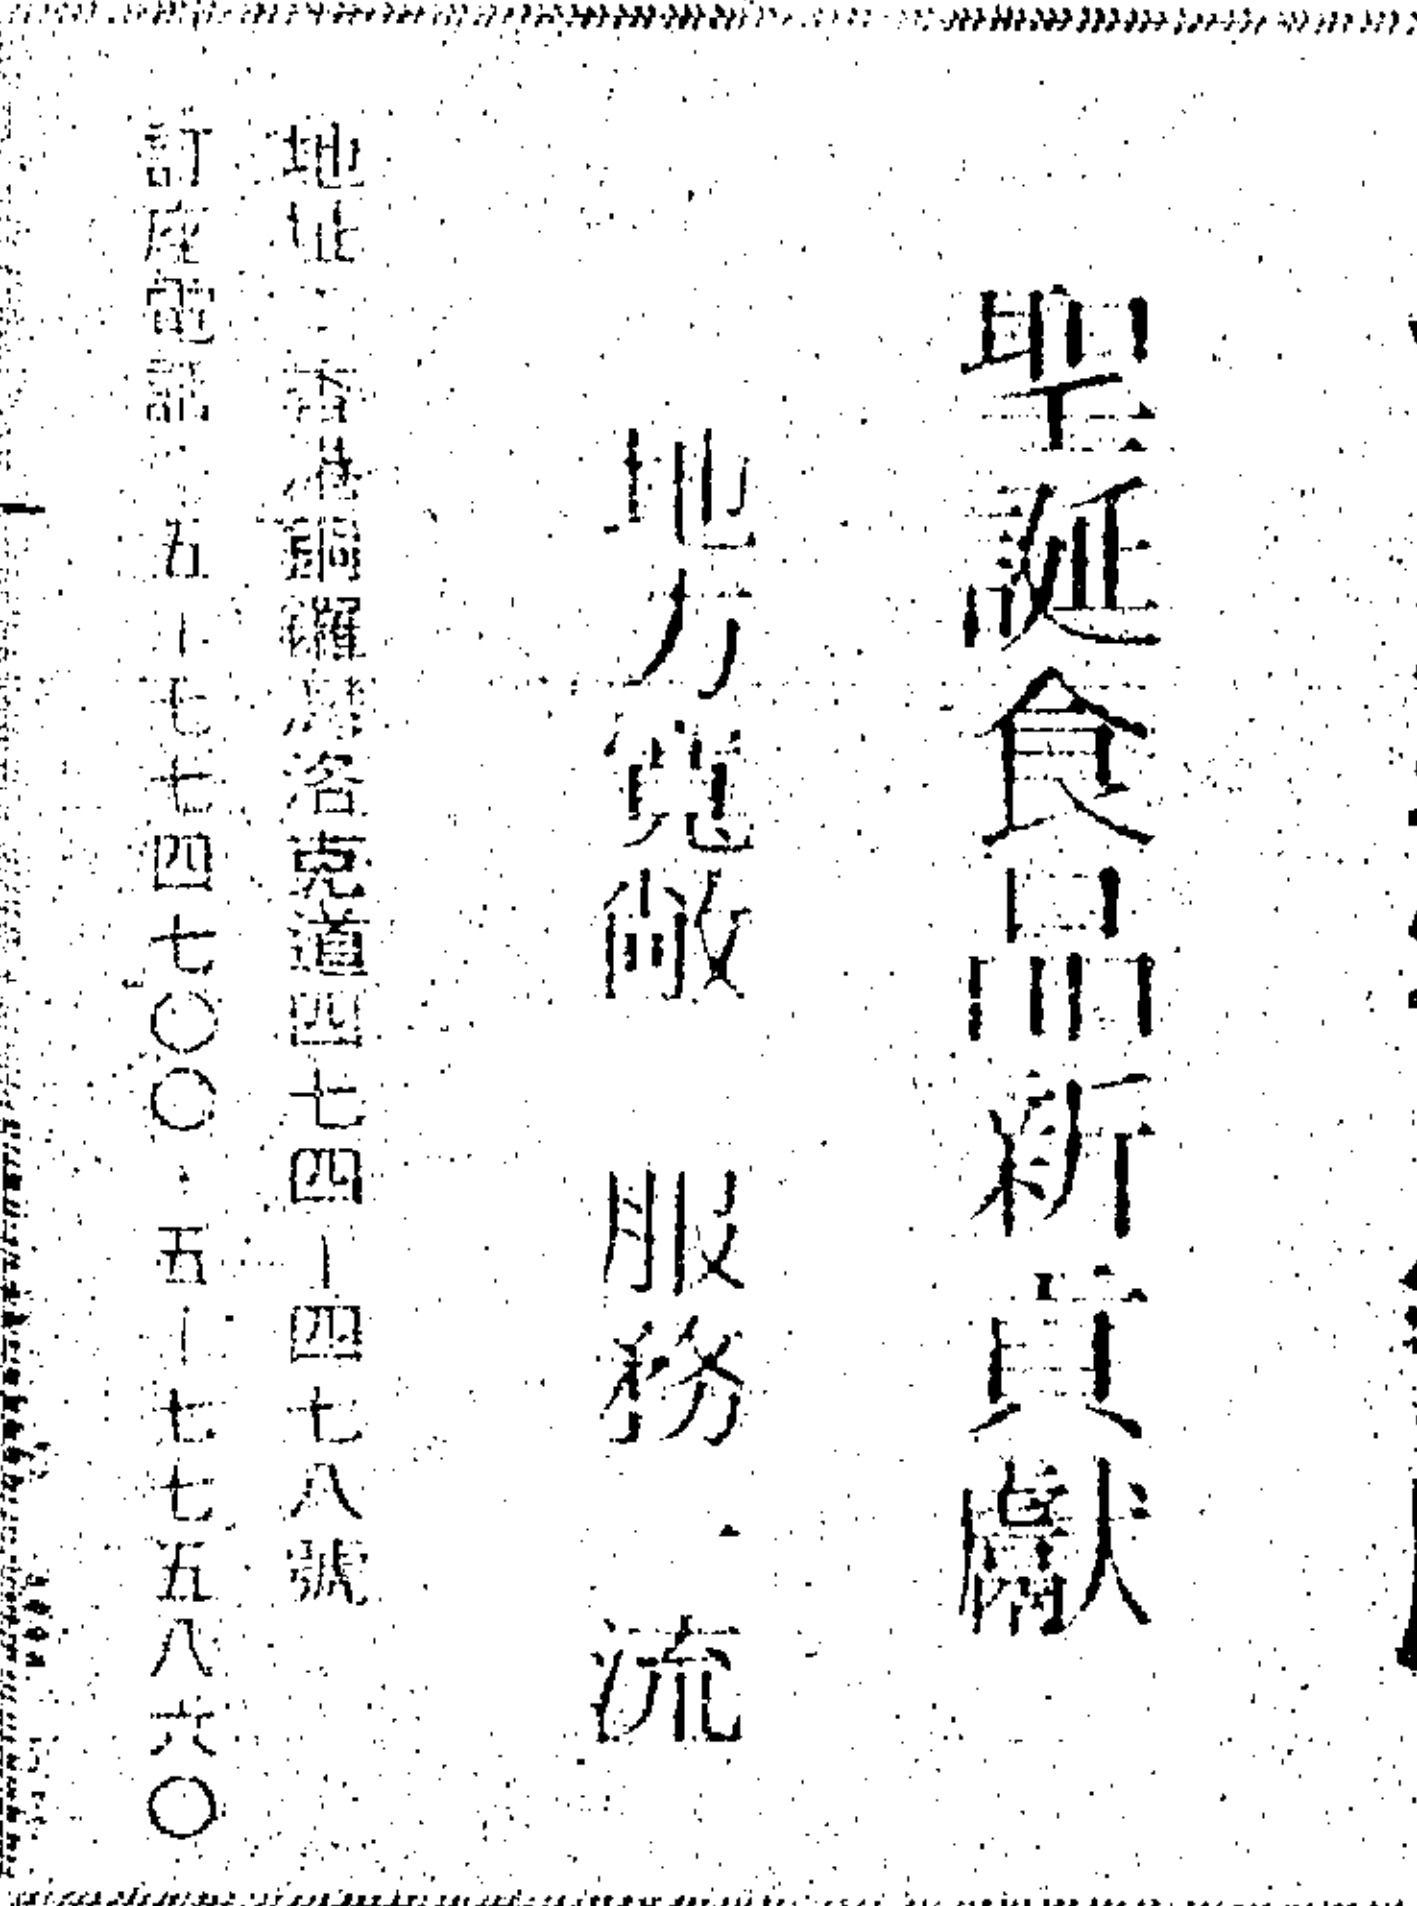 聖誕食品新貢獻
地方寬敞 服務一流
地址：香港銅鑼灣洛克道四七四－四七八號
訂座電話：五－七七四七〇〇・五－七七五八六〇